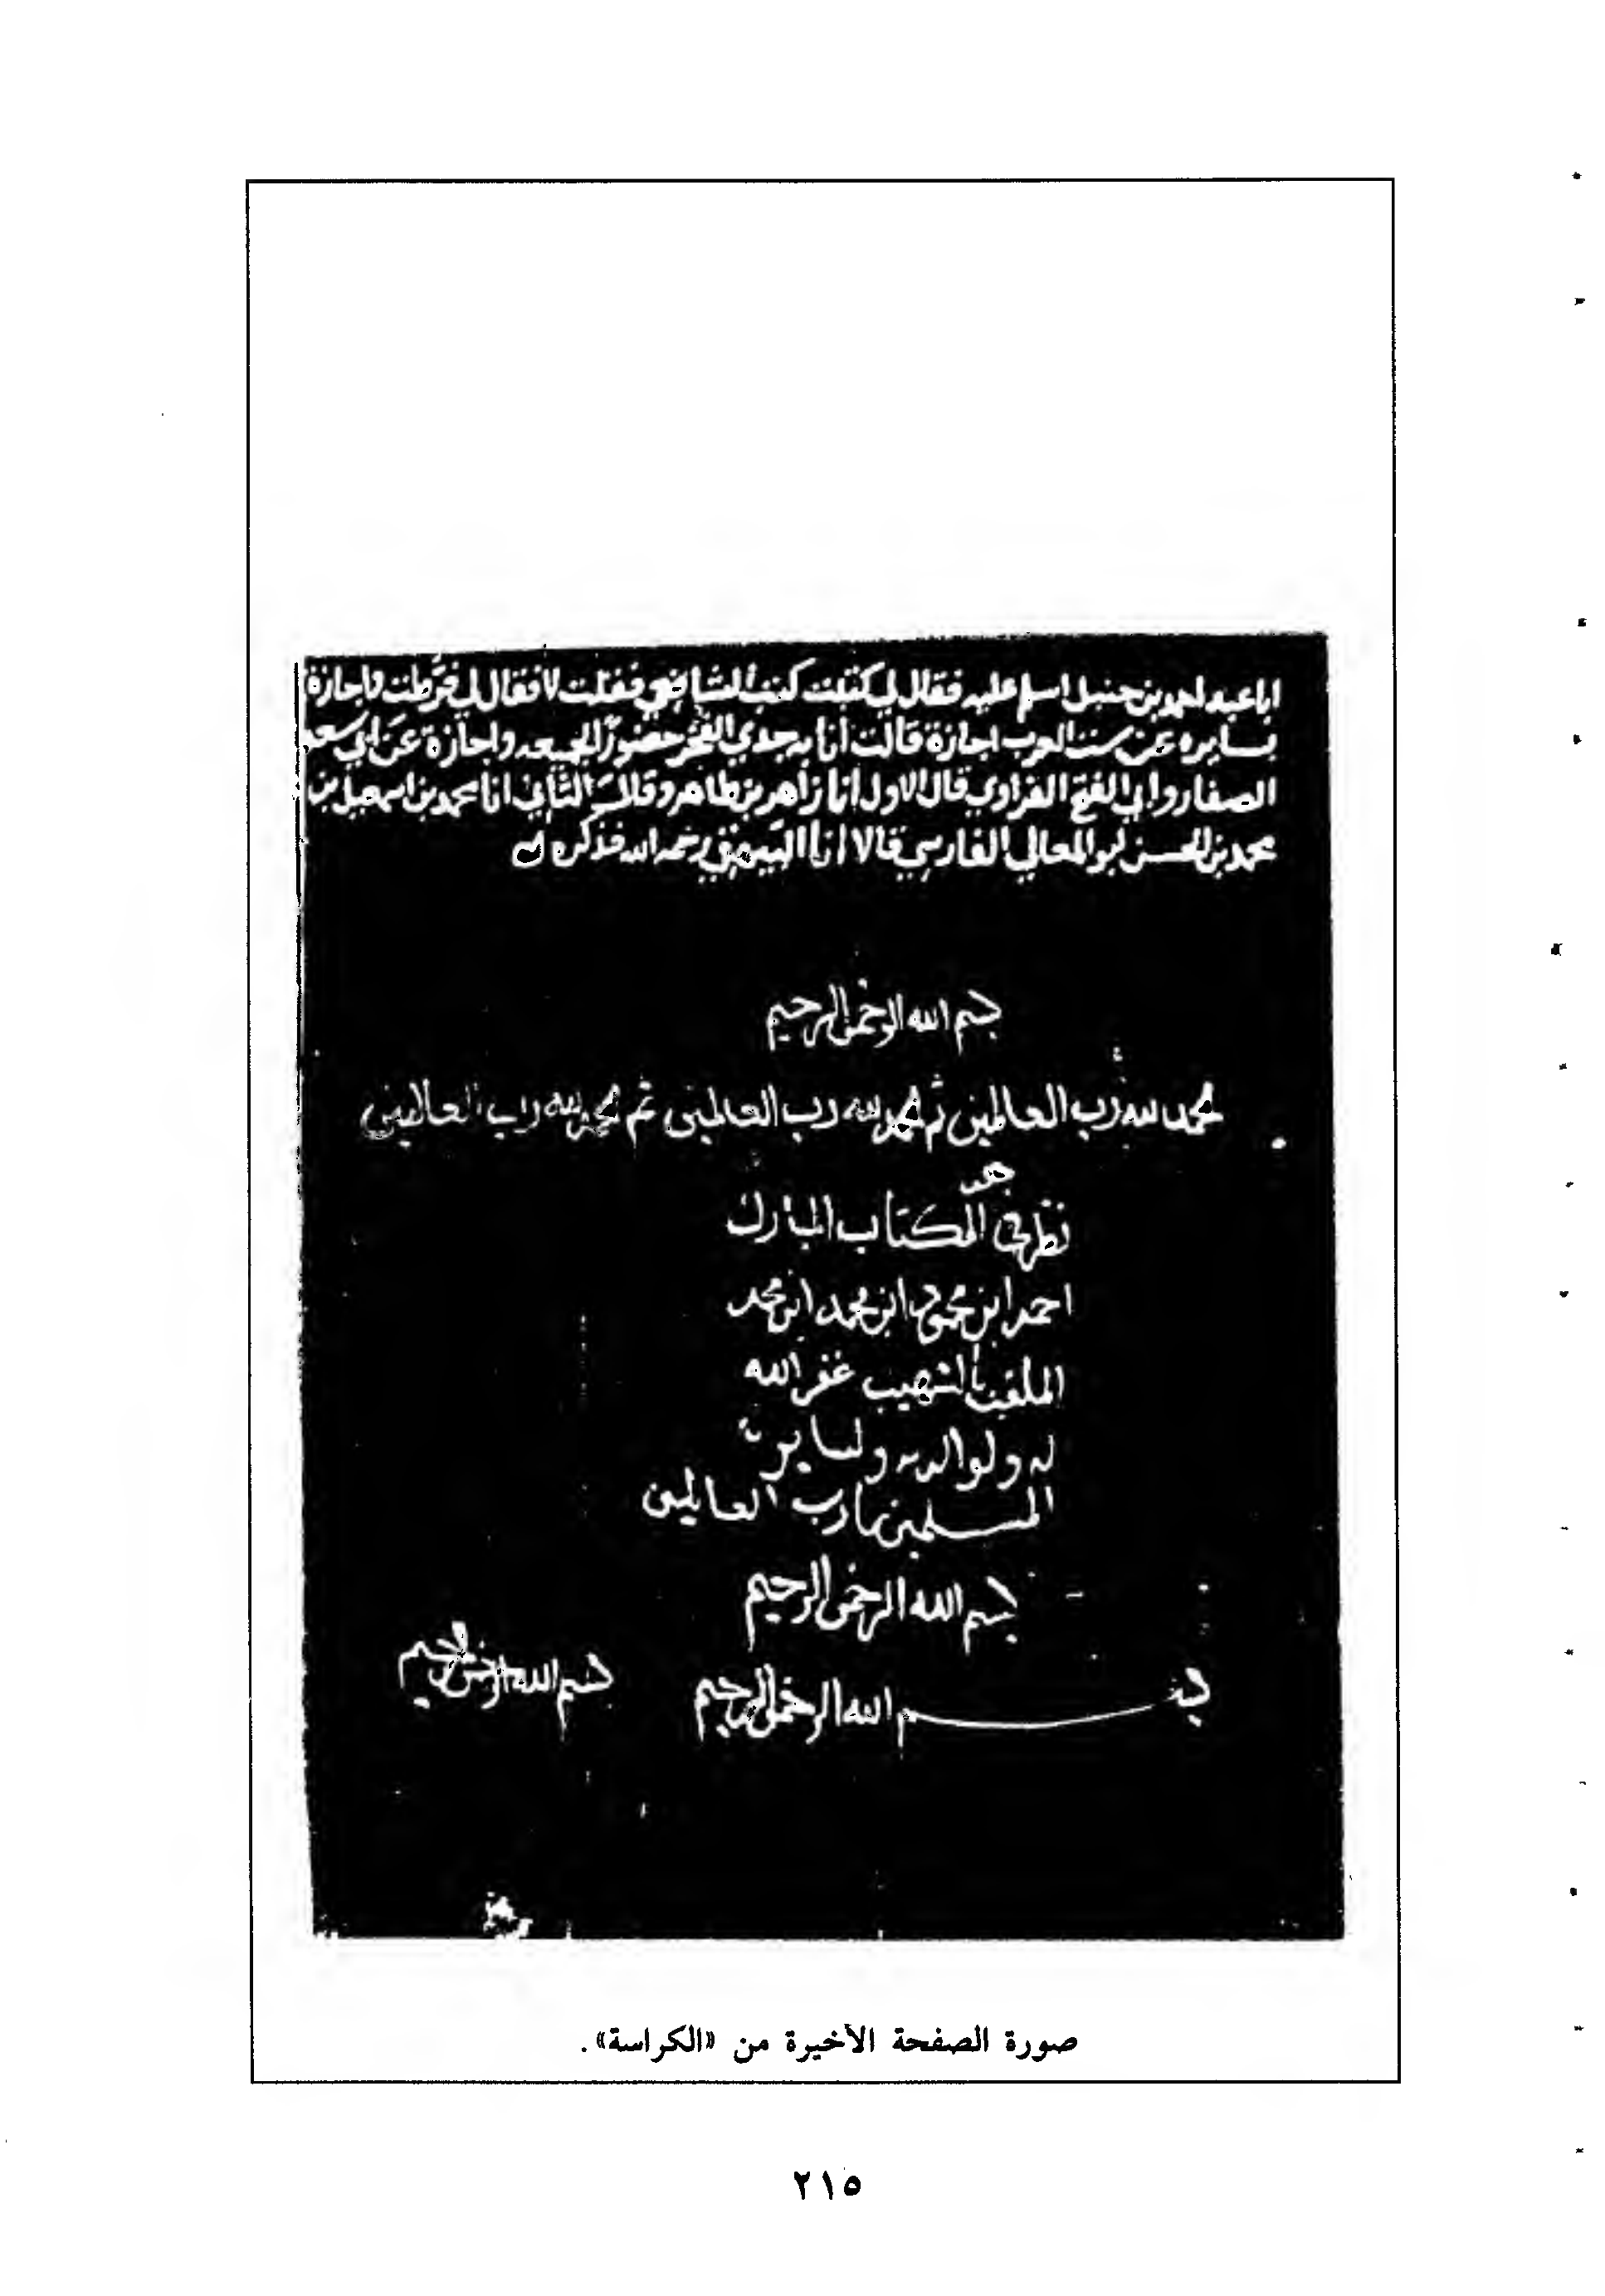 ابا عبد احمد بن حنبل اسلم عليه فقال لي كتبت كتب الشافعي فقلت لا فقال لي فرطت واجازة
بسايره عن ست العرب اجازة قالت انا به جدي الفخر حضورا لجميعه واجازة عن ابي سعد
الصفار وابي الفتح الفراوي قال الاول انا زاهر بن طاهر وقال الثاني انا محمد بن اسمعيل بن
محمد بن الحسن ابو المعالي الفارسي قالا انا البيهقي رحمه الله فذكره
بسم الله الرحمن الرحيم
لحمد لله رب العالمين ثم لحمد لله رب العالمين ثم لحمد لله رب العالمين
نظر في هد الكتاب المبارك
احمد ابن محمود ابن محمد ابن محمد
الملقب بالشهيب غفر الله
له ولوالديه ولساير
المسلمين يا رب العالمين
بسم الله الرحمن الرحيم
بسم الله الرحمن الرحيم بسم الله الرحمن الرحيم
صورة الصفحة الأخيرة من «الكراسة».
٢١٥